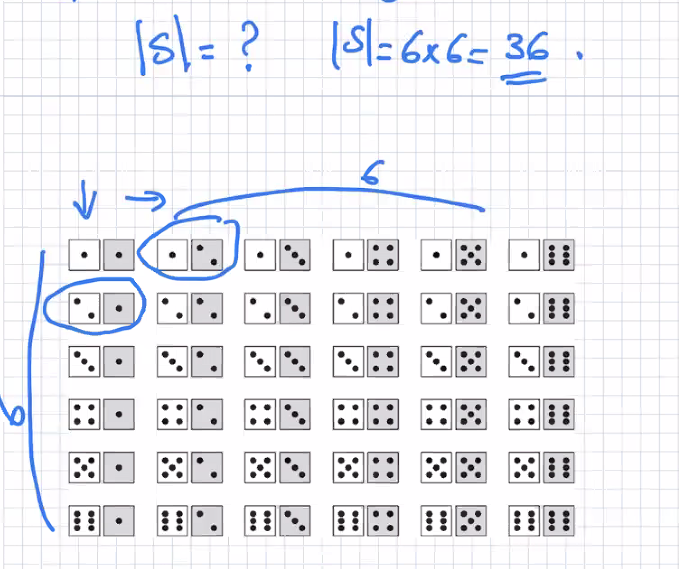 |S| = ? |S| = 6×6 = 36 .
6
6